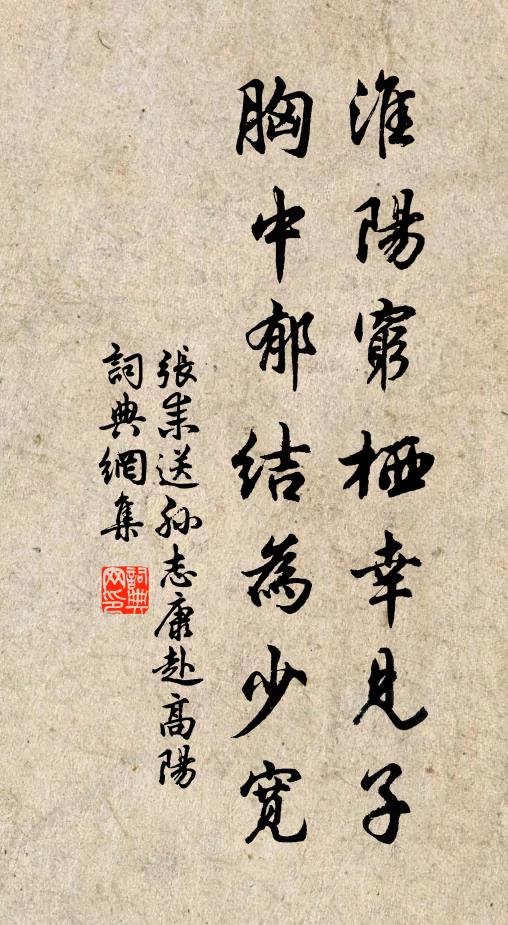 淮陽窮栖幸見子
胸中郁結為少寬
張耒送孫志康赴高陽
詞典網集
詞典網印